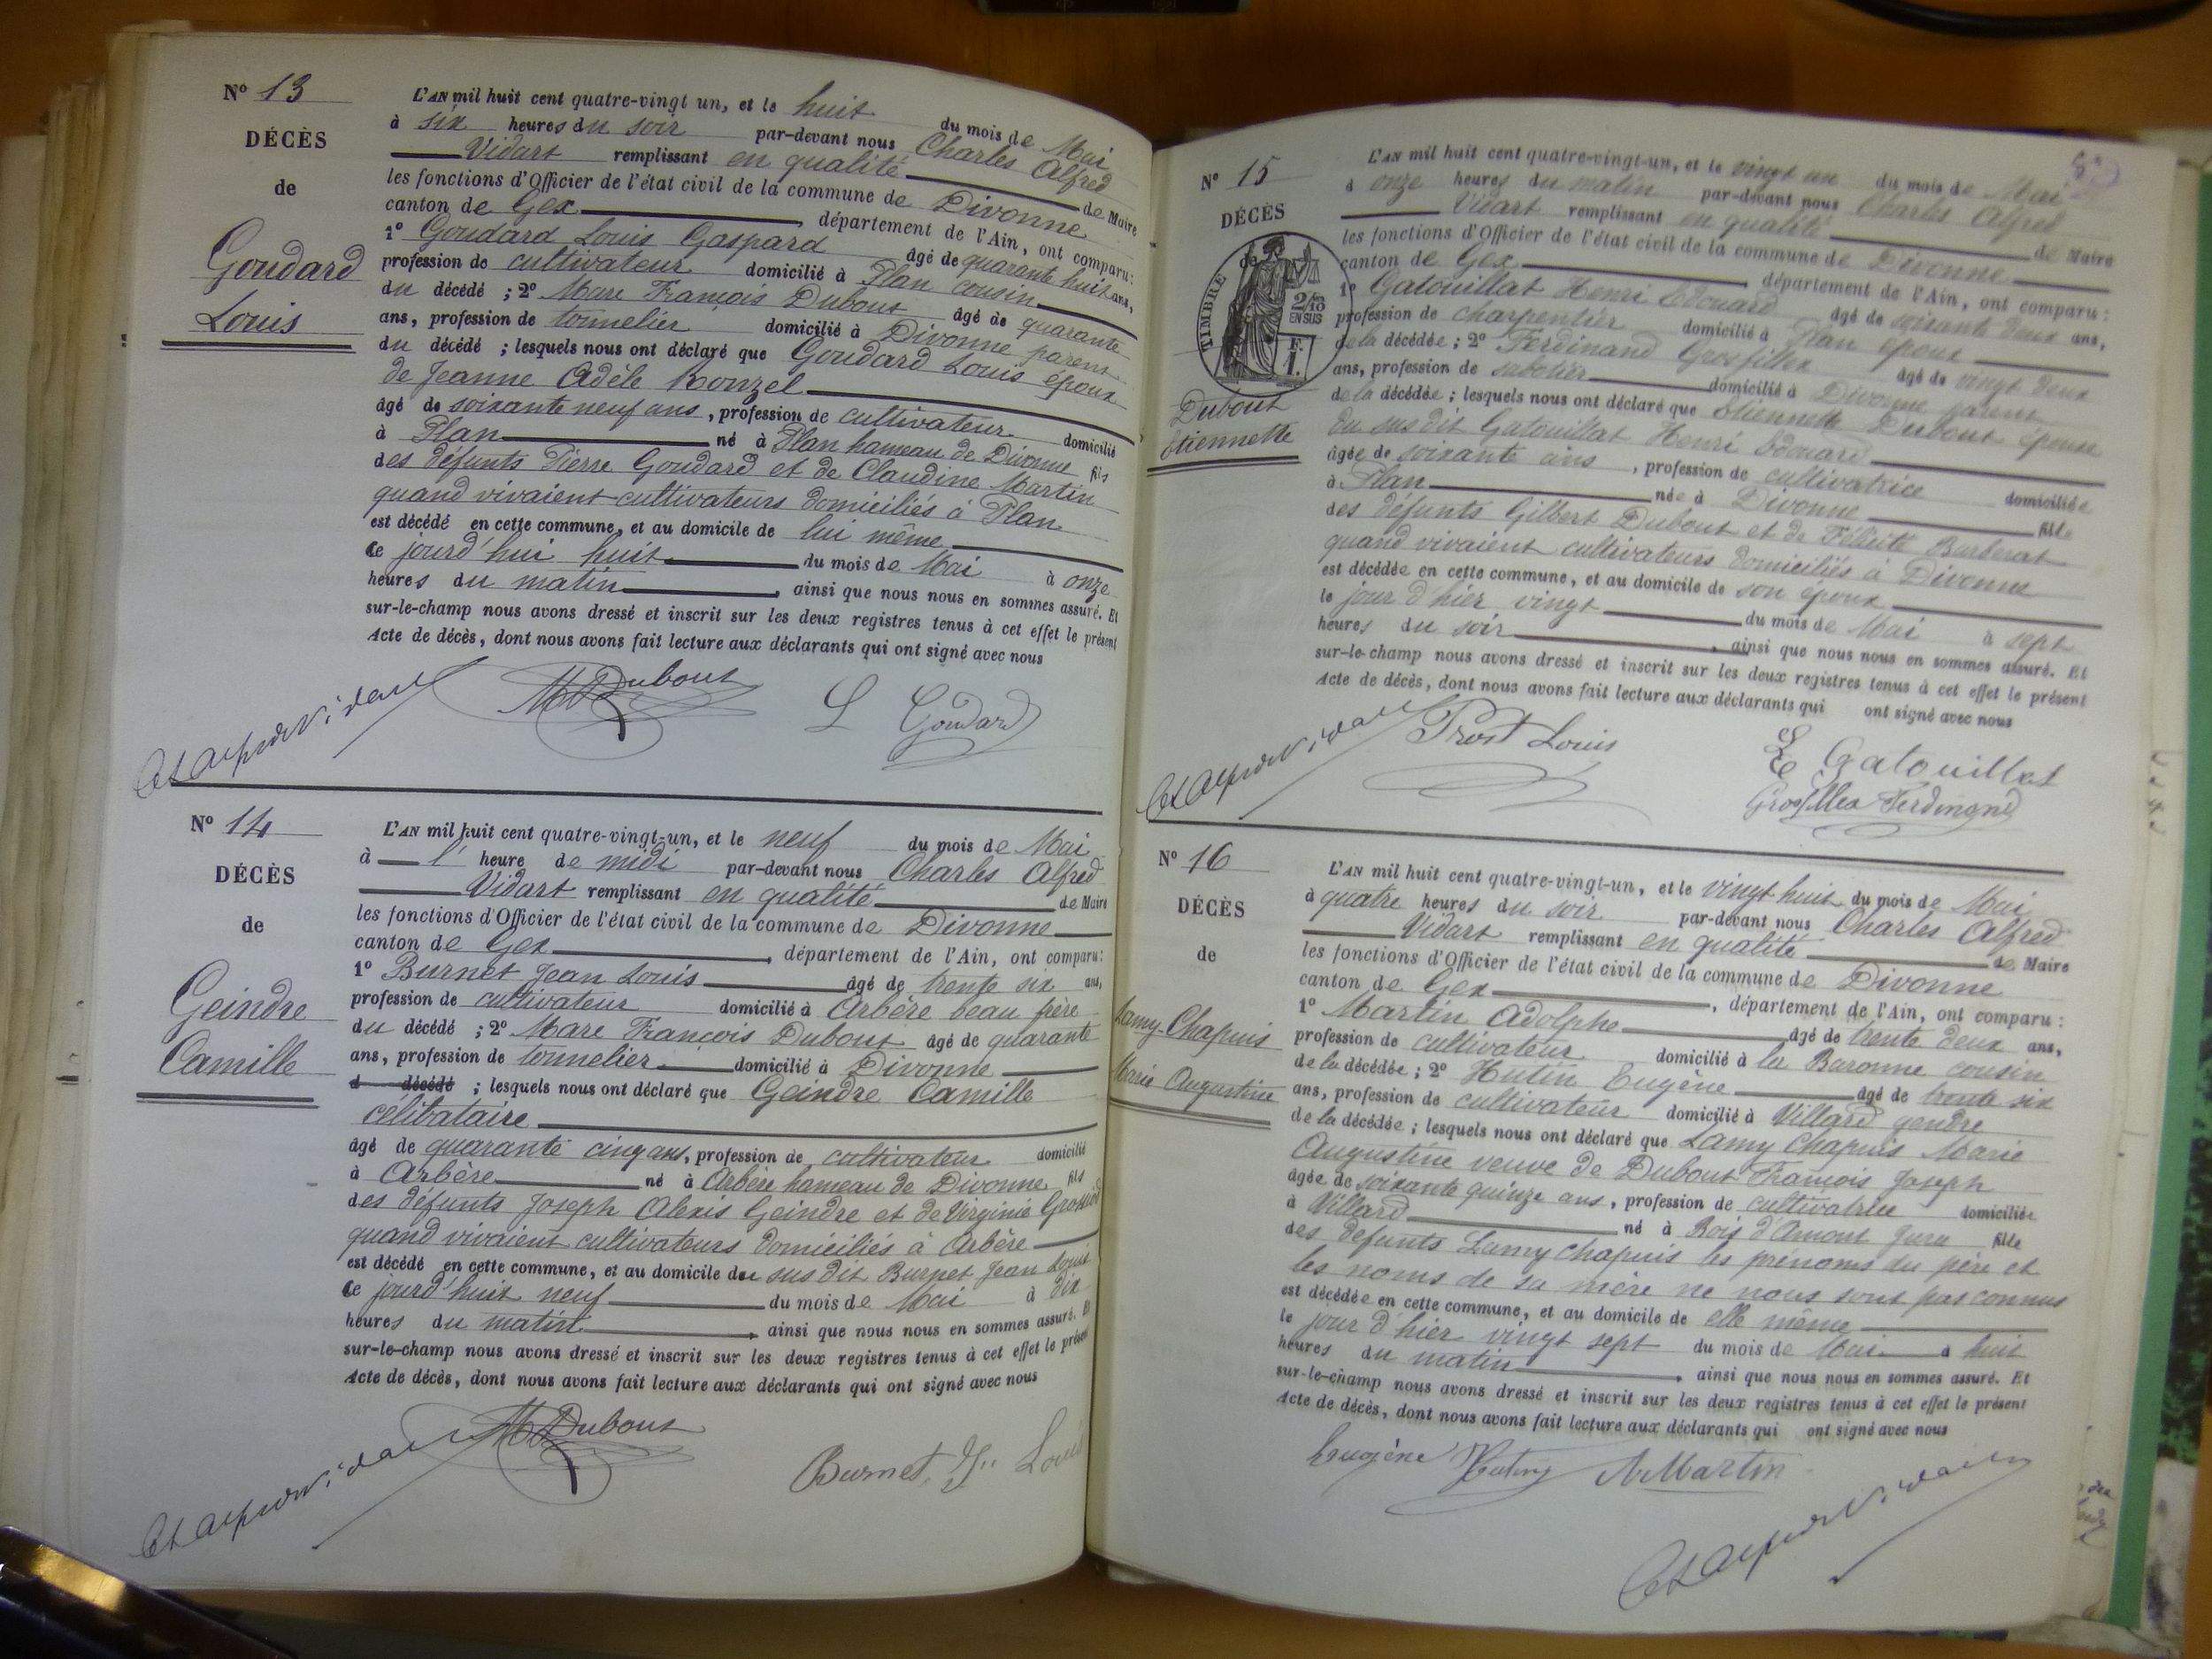 N° 13
DÉCÈS
de
Goudard
Louis
L'AN mil huit cent quatre-vingt un, et le huit du mois de Mai
à six heures du soir par-devant nous Charles Alfred
Vidart remplissant en qualité de Maire
les fonctions d'Officier de l'état civil de la commune de Divonne
canton de Gex, département de l'Ain, ont comparu:
1° Goudard Louis Gaspard âgé de quarante huit ans,
profession de cultivateur domicilié à Plan cousin
du décédé ; 2° Marc François Dubout âgé de quarante
ans, profession de tonnelier domicilié à Divonne parent
du décédé ; lesquels nous ont déclaré que Goudard Louis époux
de Jeanne Adèle Ronzel
âgé de soixante neuf ans, profession de cultivateur domicilié
à Plan né à Plan hameau de Divonne fils
des défunts Pierre Goudard et de Claudine Martin
quand vivaient cultivateurs domiciliés à Plan
est décédé en cette commune, et au domicile de lui même
ce jourd'hui huit du mois de Mai à onze
heures du matin, ainsi que nous nous en sommes assuré. Et
sur-le-champ nous avons dressé et inscrit sur les deux registres tenus à cet effet le présent
Acte de décès, dont nous avons fait lecture aux déclarants qui ont signé avec nous
Ch Alfred Vidart M Dubout L Goudard
N° 14
DÉCÈS
de
Geindre
Camille
L'AN mil huit cent quatre-vingt-un, et le neuf du mois de Mai
à l' heure de midi par-devant nous Charles Alfred
Vidart remplissant en qualité de Maire
les fonctions d'Officier de l'état civil de la commune de Divonne
canton de Gex, département de l'Ain, ont comparu:
1° Burnet Jean Louis âgé de trente six ans,
profession de cultivateur domicilié à Arbère beau frère
du décédé ; 2° Marc François Dubout âgé de quarante
ans, profession de tonnelier domicilié à Divonne
d décédé ; lesquels nous ont déclaré que Geindre Camille
célibataire
âgé de quarante cinq ans, profession de cultivateur domicilié
à Arbère né à Arbère hameau de Divonne fils
des défunts Joseph Alexis Geindre et de Virginie
quand vivaient cultivateurs domiciliés à Arbère
est décédé en cette commune, et au domicile du sus dit Burnet Jean Louis
ce jourd'huit neuf du mois de Mai à dix
heures du matin, ainsi que nous nous en sommes assuré. Et
sur-le-champ nous avons dressé et inscrit sur les deux registres tenus à cet effet le présent
Acte de décès, dont nous avons fait lecture aux déclarants qui ont signé avec nous
Ch Alfred Vidart M Dubout Burnet, J. Louis
N° 15
DÉCÈS
de
TIMBRE
2/10
EN SUS
F.
1.
Dubout
Etiennette
L'AN mil huit cent quatre-vingt-un, et le vingt un du mois de Mai
à onze heures du matin par-devant nous Charles Alfred
Vidart remplissant en qualité de Maire
les fonctions d'Officier de l'état civil de la commune de Divonne
canton de Gex, département de l'Ain, ont comparu:
1° Gatouillat Henri Edouard âgé de soixante deux ans,
profession de charpentier domicilié à Plan époux
de la décédée ; 2° Ferdinand Grosfillex âgé de vingt deux
ans, profession de sabotier domicilié à Divonne parent
de la décédée ; lesquels nous ont déclaré que Etiennette Dubout épouse
du sus dit Gatouillat Henri Edouard
âgée de soixante ans, profession de cultivatrice domiciliée
à Plan née à Divonne fille
des défunts Gilbert Dubout et de Félicité Barberat
quand vivaient cultivateurs domiciliés à Divonne
est décédée en cette commune, et au domicile de son époux
le jour d'hier vingt du mois de Mai à sept
heures du soir, ainsi que nous nous en sommes assuré. Et
sur-le-champ nous avons dressé et inscrit sur les deux registres tenus à cet effet le présent
Acte de décès, dont nous avons fait lecture aux déclarants qui ont signé avec nous
Ch Alfred Vidart Prost Louis E Gatouillat
Grosfillex Ferdinand
N° 16
DÉCÈS
de
Lamy Chapuis
Marie Augustine
L'AN mil huit cent quatre-vingt-un, et le vingt huit du mois de Mai
à quatre heures du soir par-devant nous Charles Alfred
Vidart remplissant en qualité de Maire
les fonctions d'Officier de l'état civil de la commune de Divonne
canton de Gex, département de l'Ain, ont comparu:
1° Martin Adolphe âgé de trente deux ans,
profession de cultivateur domicilié à la Baronne cousin
de la décédée ; 2° Hutin Eugène âgé de trente six
ans, profession de cultivateur domicilié à Villard gendre
de la décédée ; lesquels nous ont déclaré que Lamy Chapuis Marie
Augustine veuve de Dubout François Joseph
âgée de soixante quinze ans, profession de cultivatrice domiciliée
à Villard né à Bois d'Amont Jura fille
des défunts Lamy Chapuis les prénoms du père et
les noms de sa mère ne nous sont pas connus
est décédée en cette commune, et au domicile de elle même
le jour d'hier vingt sept du mois de Mai à huit
heures du matin, ainsi que nous nous en sommes assuré. Et
sur-le-champ nous avons dressé et inscrit sur les deux registres tenus à cet effet le présent
Acte de décès, dont nous avons fait lecture aux déclarants qui ont signé avec nous
Eugène Hutin A Martin
Ch Alfred Vidart